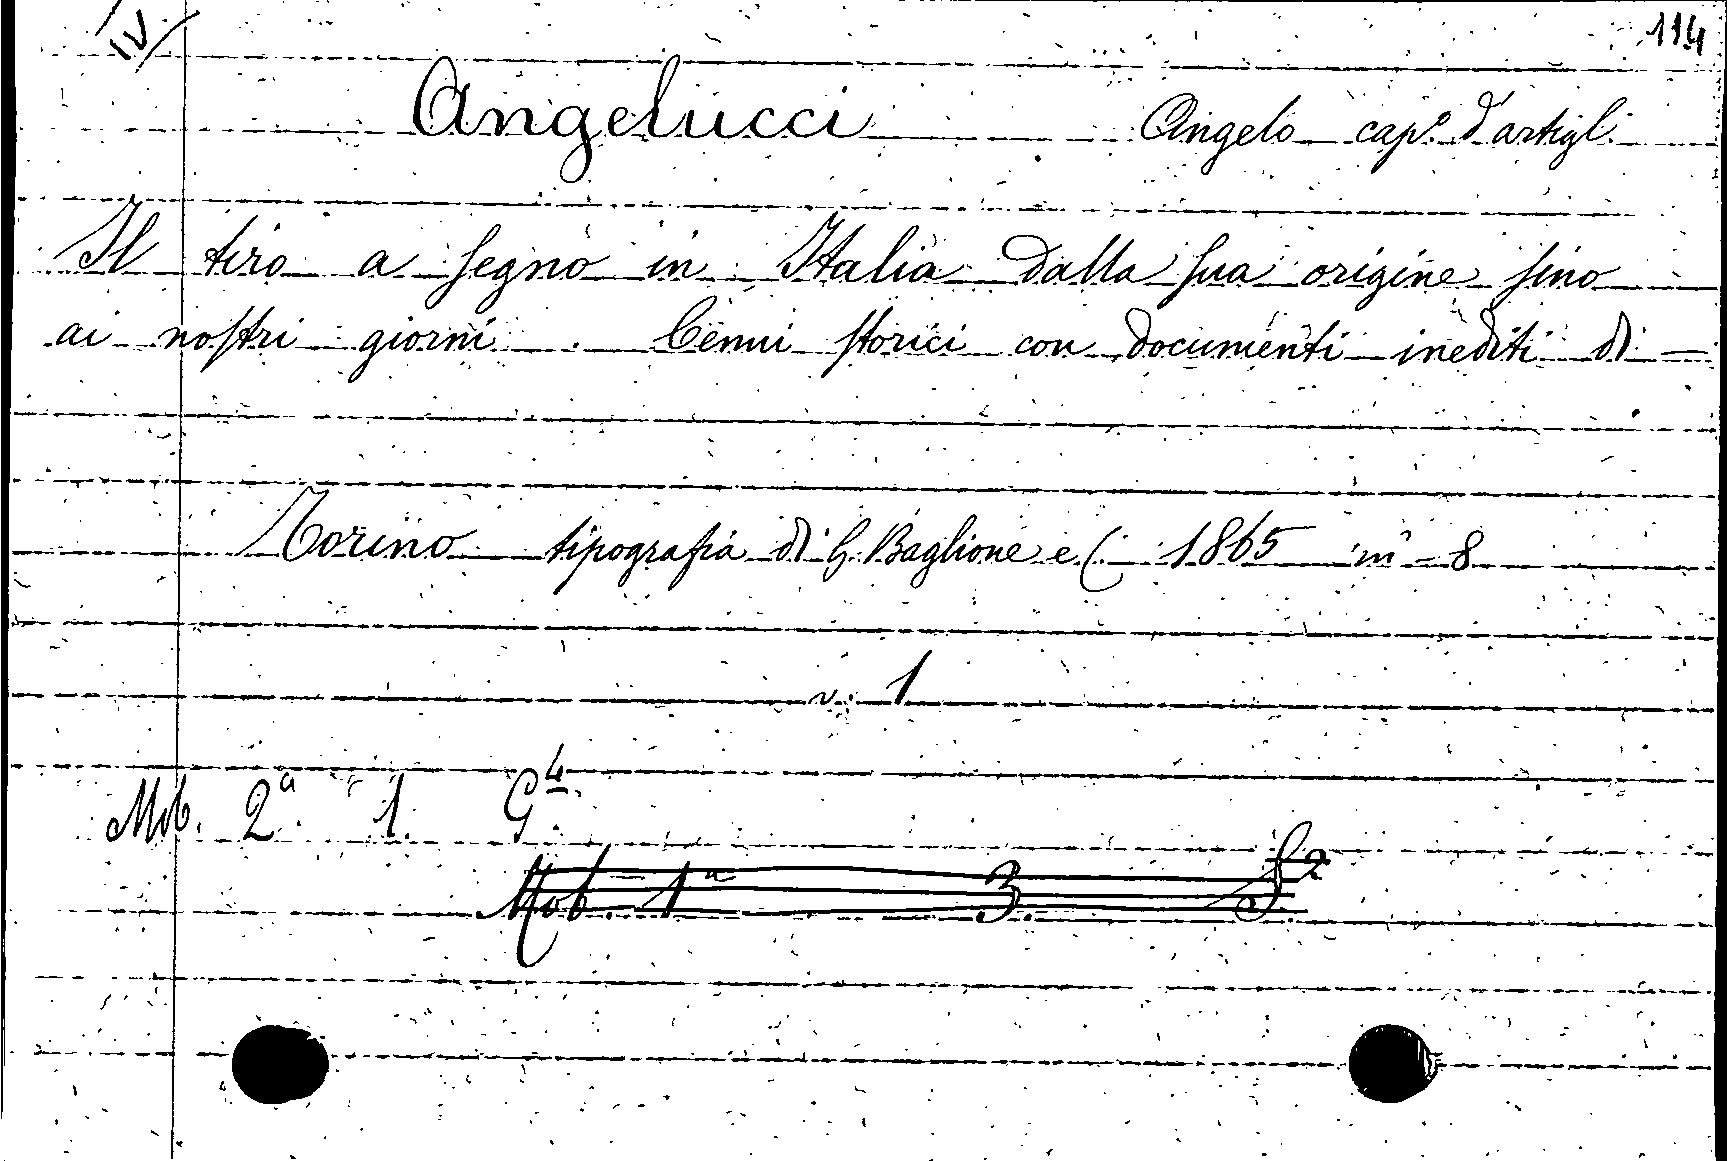 IV
114
Angelucci Angelo cap.º d'artigl.
Il tiro a segno in Italia dalla sua origine sino
ai nostri giorni. Cenni storici con documenti inediti di —
Torino tipografia di G. Baglione e C. 1865 in-8
v. 1
Mob. 2ª. 1. G4.
Mob. 1ª 3.